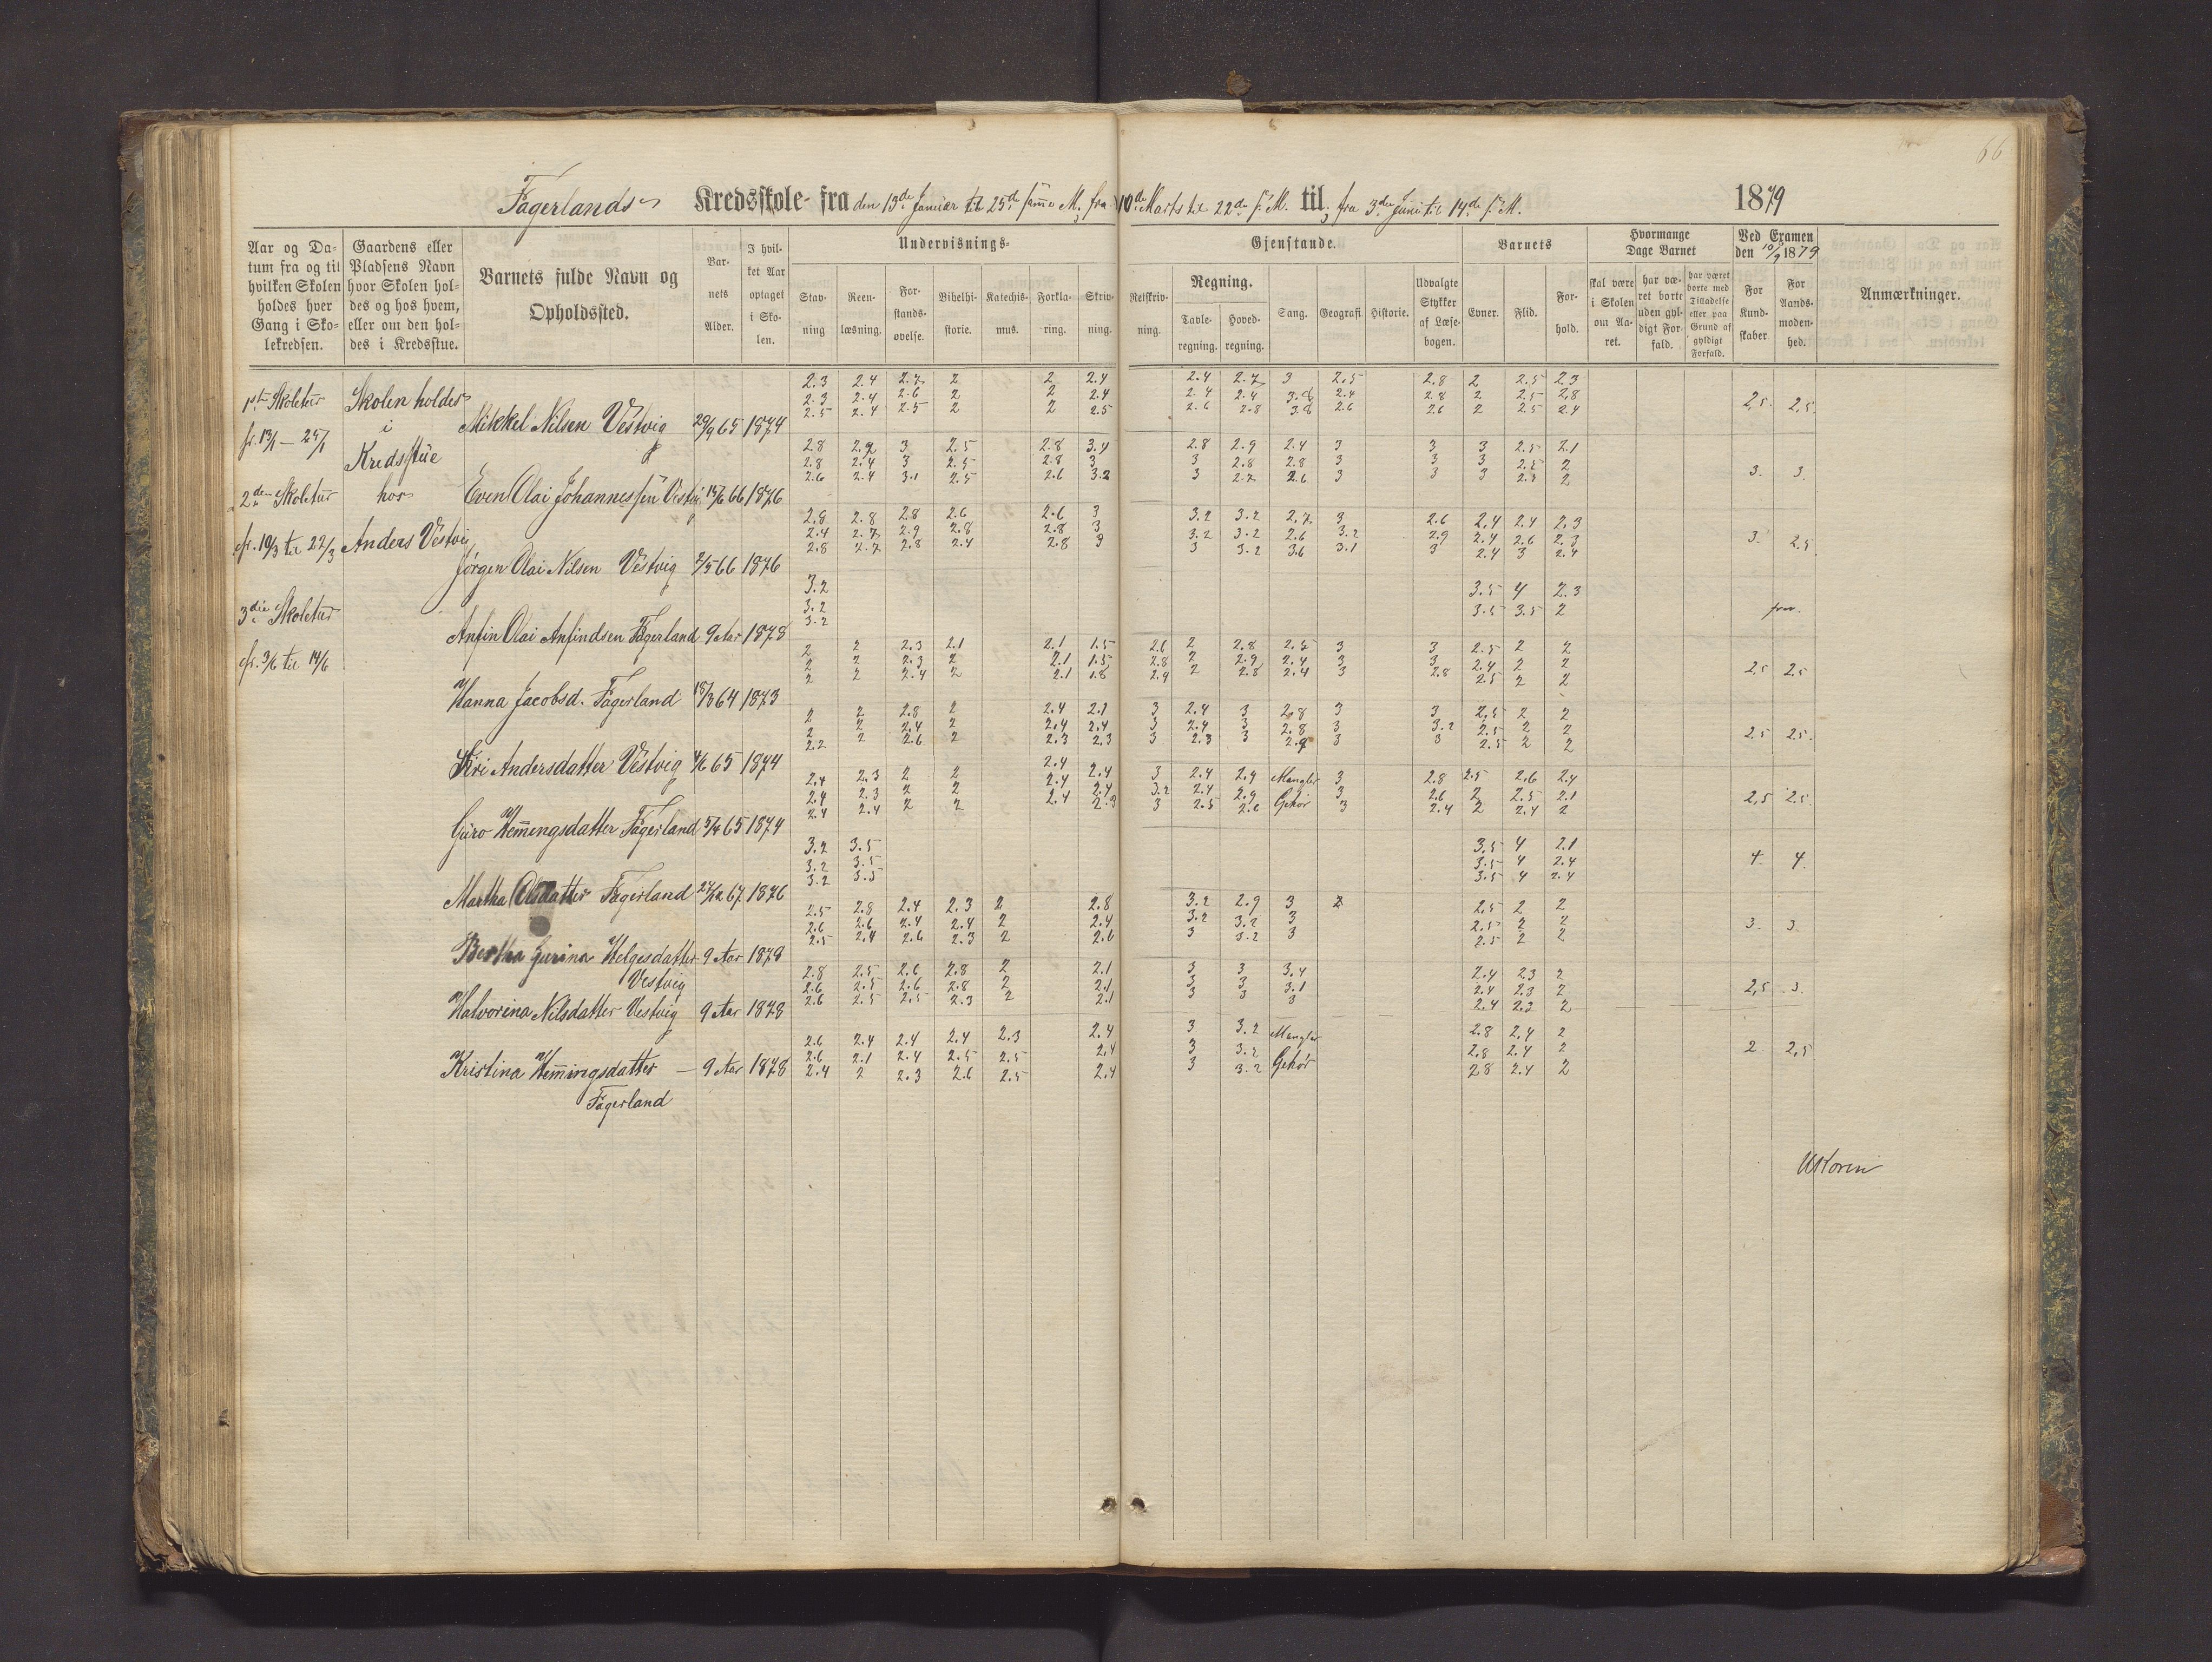 66
Fagerlands Kredsskole fra den 13de Januar til 25de samme M., fra 10de Marts til 22de s. M. til, fra 3die Juni til 14de s. M. 1879
Aar og Datum fra og til hvilken Skolen holdes hver Gang i Skolekredsen.
Gaardens eller Pladsens Navn hvor Skolen holdes og hos hvem, eller om den holdes i Kredsstue.
Barnets fulde Navn og Opholdssted.
Barnets Alder.
I hvilket Aar optaget i Skolen.
Undervisnings- Gjenstande.
Stavning
Reenlæsning.
Forstandsøvelse.
Bibelhistorie.
Katechismus.
Forklaring.
Skrivning.
Retskrivning.
Regning.
Tavleregning.
Hovedregning.
Sang.
Geografi.
Historie.
Udvalgte Stykker af Læsebogen.
Barnets
Evner.
Flid.
Forhold.
Hvormange Dage Barnet
skal være i Skolen om Aaret.
har været borte uden gyldigt Forfald.
har været borte med Tilladelse eller paa Grund af gyldigt Forfald.
Ved Examen den 10/9 1879
For Kundskaber
For Aandsmodenhed.
Anmærkninger.
1ste Skoletur
fr. 13/1 — 25/1
2den Skoletur
fr. 10/3 til 22/3
3die Skoletur
fr. 3/6 til 14/6
Skolen holdes
i
Kredsstue
hos
Anders Vestvig
2.3 2.4 2.7 2 2 2.4 2.4 2.7 3 2.5 2.8 2 2.5 2.3
2.3 2.4 2.6 2 2 2.4 2.4 2.4 3.8 2.4 2.8 2 2.5 2.8
Mikkel Nilsen Vestvig 29/9 65 1874 2.5 2.4 2.5 2 2 2.5 2.6 2.8 3.8 2.6 2.6 2 2.5 2.4 2,5. 2,5.
2.8 2.9 3 2.5 2.8 3.4 2.8 2.9 2.4 3 3 3 2.5 2.1
2.8 2.4 3 2.5 2.8 3 3 2.8 2.8 3 3 3 2.5 2
Even Olai Johannessen Vestvig 15/6 66 1876 2.6 2.4 3.1 2.5 2.6 3.2 3 2.7 2.6 3 3 3 2.5 2 3. 3.
2.8 2.8 2.8 2.6 2.6 3 3.2 3.2 2.7 3 2.6 2.4 2.4 2.3
2.4 2.7 2.9 2.8 2.8 3 3.2 3.2 2.6 3.2 2.9 2.4 2.6 2.3
Jørgen Olai Nilsen Vestvig 2/5 66 1876 2.8 2.7 2.8 2.4 2.8 3 3 3.2 3.6 3.1 3 2.4 3 2.4 3. 2,5.
3.2 3.5 4 2.3
3.2 3.5 3.5 2
Anfin Olai Anfindsen Fagerland 9 Aar 1878 3.2 frav.
2 2 2.3 2.1 2.1 1.5 2.6 2 2.8 2.5 3 3 2.5 2 2
2 2 2.3 2 2.1 1.5 2.8 2 2.9 2.4 3 3 2.4 2 2
Hanna Jacobsd. Fagerland 18/3 64 1873 2 2 2.4 2 2.1 1.8 2.4 2 2.8 2.4 3 2.8 2.5 2 2 2,5 2,5
2 2 2.8 2 2.4 2.1 3 2.4 3 2.8 3 3 2.5 2 2
2 2 2.4 2 2.4 2.4 3 2.4 3 2.8 3 3.2 2.5 2 2
Kri Andersdatter Vestvig 4/6 65 1874 2.2 2 2.6 2 2.3 2.3 3 2.3 3 2.9 3 3 2.5 2 2 2,5 2,5.
2.4 2.3 2 2 2.4 2.4 3 2.4 2.9 Mangler 3 2.8 2.5 2.6 2.4
2.4 2.3 2 2 2.4 2.4 3.2 2.4 2.9 Gehør 3 2.6 2 2.5 2.1
Guro Hemmingsdatter Fagerland 5/4 65 1874 2.4 2.4 2 2 2.4 2.3 3 2.5 2.6 3 2.4 2 2.4 2 2,5 2,5.
3.2 3.5 3.5 4 2.1
3.2 3.5 3.5 4 2.4
Martha Olsdatter Fagerland 24/12 67 1876 3.2 3.5 3.5 4 2.4 4. 4.
2.5 2.8 2.4 2.3 2 2.8 3.2 2.9 3 2 2.5 2 2
2.6 2.6 2.4 2.4 2 2.4 3.2 3.2 3 2.5 2 2
Bertha Gurina Helgesdatter 9 Aar 1878 2.5 2.4 2.6 2.3 2 2.6 3 3.2 3 2.5 2 2 3. 3.
Vestvig
2.8 2.5 2.6 2.8 2 2.1 3 3 3.4 2.4 2.3 2
2.6 2.5 2.6 2.8 2 2.1 3 3 3.1 2.4 2.3 2
Halvorina Nilsdatter Vestvig 9 Aar 1878 2.6 2.5 2.5 2.3 2 2.1 3 3 3 2.4 2.3 2 2,5 3.
2.6 2.4 2.4 2.4 2.3 2.4 3 3.2 Mangler 2.8 2.4 2
2.6 2.1 2.4 2.5 2.5 2.4 3 3.2 Gehør 2.8 2.4 2
Kristina Hemmingsdatter — 9 Aar 1878 2.4 2 2.3 2.6 2.5 2.4 3 3.2 2.8 2.4 2 2. 2,5
Fagerland